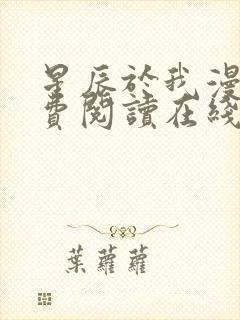 星辰於我漫
費閱讀在綫
葉蘿蘿